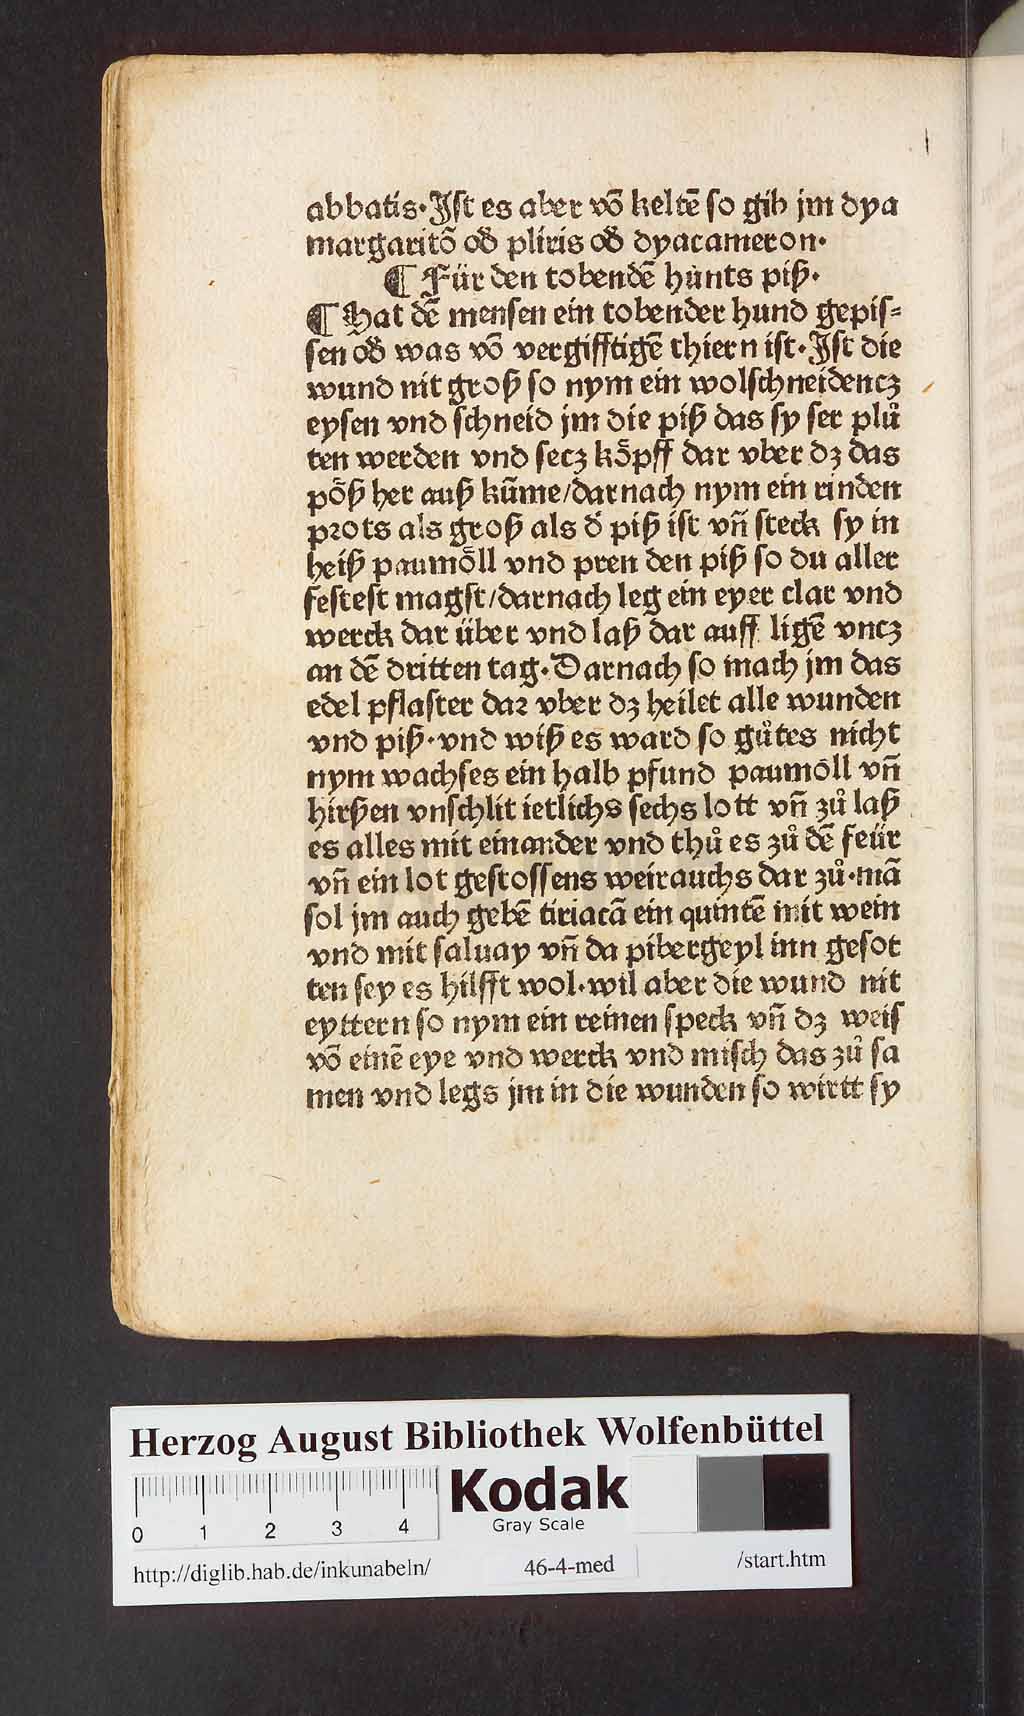 abbatis·Jſt es aber võ keltẽ ſo gib jm dya
margaritõ od̕ pliris od̕ dyacameron·
¶ Für den tobendẽ hunts piß·
¶ Hat dẽ menſen ein tobender hund gepiſ⸗
ſen od̕ was võ vergifftigẽ thiern iſt·Jſt die
wund nit groß ſo nym ein wolſchneidencʒ
eyſen vnd ſchneid jm die piß das ſy ſer plů
ten werden vnd ſecʒ koͤpff dar vber dʒ das
poͤß her auß kũme/darnach nym ein rinden
pꝛots als groß als d̕ piß iſt vñ ſteck ſy in
heiß paumoͤll vnd pren den piß ſo du aller
feſteſt magſt/darnach leg ein eyer clar vnd
werck dar über vnd laß dar auff ligẽ vncʒ
an dẽ dritten tag·Darnach ſo mach jm das
edel pflaſter daꝛ vber dʒ heilet alle wunden
vnd piß·vnd wiß es ward ſo gůtes nicht
nym wachſes ein halb pfund paumoͤll vñ
hirßen vnſchlit ietlichs ſechs lott vñ zů laß
es alles mit einander vnd thů es zů dẽ feür
vñ ein lot geſtoſſens weirauchs dar zů·mã
ſol jm auch gebẽ tiriacã ein quintẽ mit wein
vnd mit ſaluay vñ da pibergeyl inn geſot
ten ſey es hilfft wol·wil aber die wund nit
eyttern ſo nym ein reinen ſpeck vñ dʒ weiſ
võ einẽ eye vnd werck vnd miſch das zů ſa
men vnd legs jm in die wunden ſo wirtt ſy
Herzog August Bibliothek Wolfenbüttel
Kodak
Gray Scale
0 1 2 3 4
http://diglib.hab.de/inkunabeln/ 46-4-med /start.htm